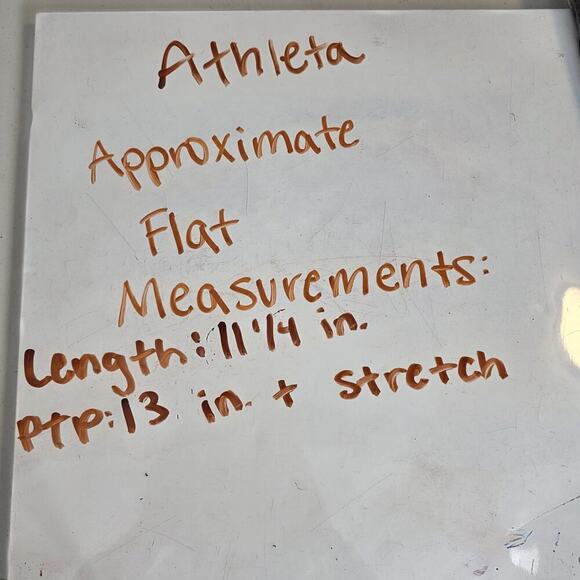 Athleta
Approximate
Flat
Measurements:
Length: 11 1/4 in.
PTP: 13 in. + stretch